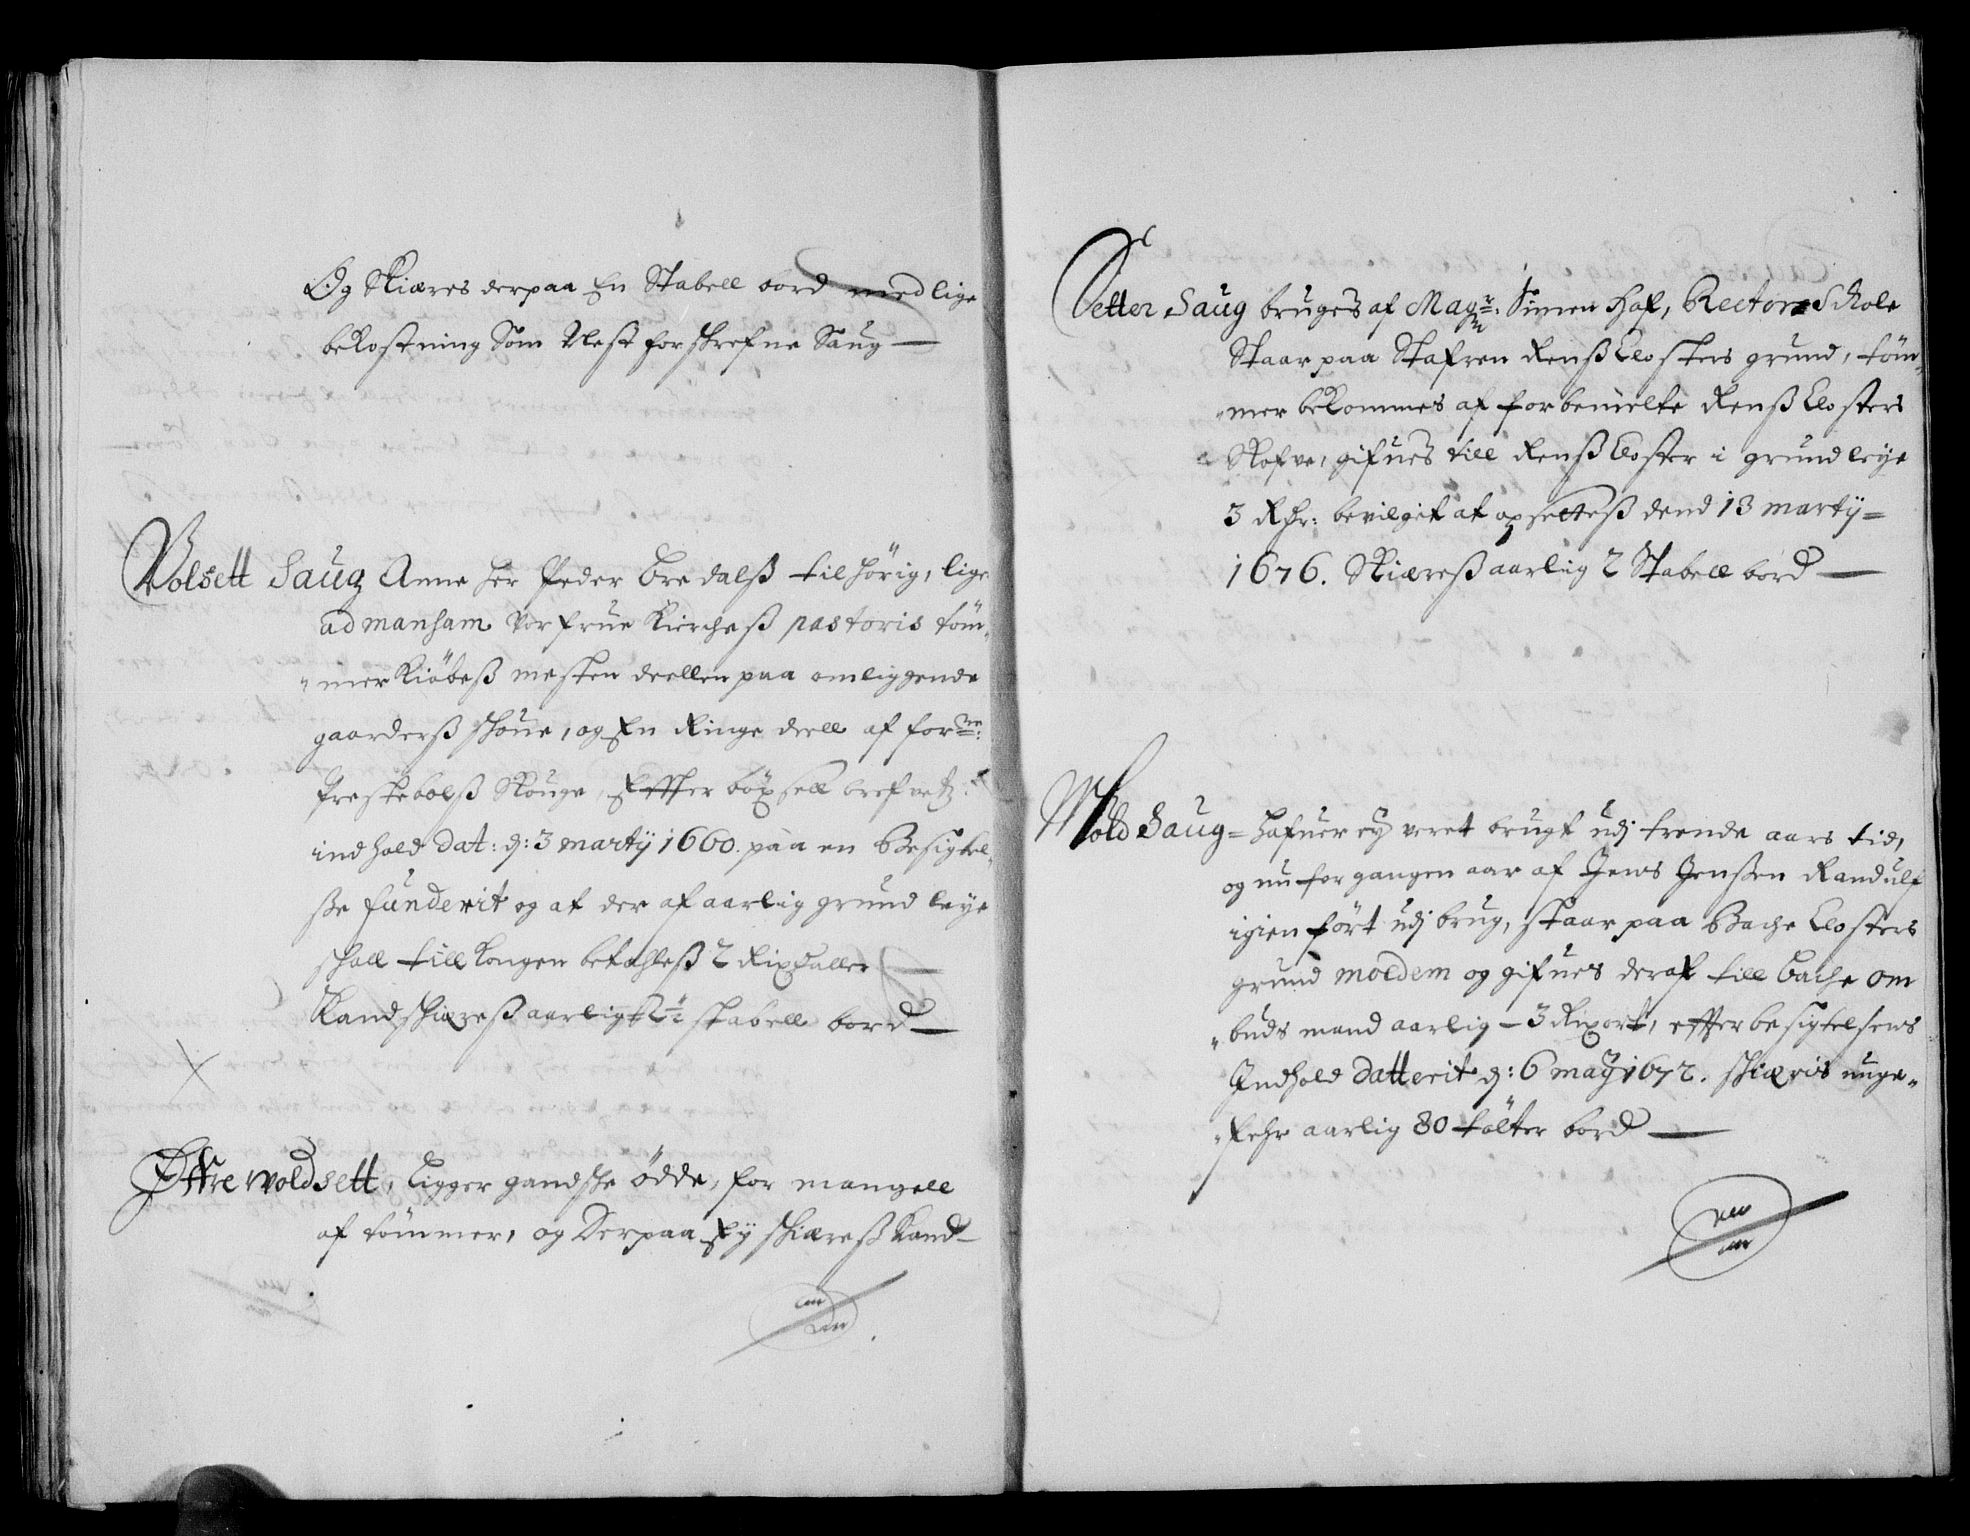 Og Skiæres derpaa En Stabell bord med lige
bekostning Som Nest forschrefne Saug
Volsett Saug Anne her Peder Bredalß tilhörig, lige
ad mansam vor frue Kircheß pastoris töm-
mer Kiöbeß mesten deellen paa omliggende
gaarderß schoue, og En Ringe deell af forne:
Prestebolß Skouge, Effter böxsell brefvetz
indhold dat: d: 3 marty 1660. paa en Besigtel-
ße funderit og at der af aarlig grund leye
schall till Kongen betahleß 2 Rixdaller
Kand schiæreß aarlig 2 stabell bord
Øffre woldsett, Ligger gandsche ödde, for mangell
af tömmer, og Derpaa Ey schiæreß Kand
Setter Saug bruges af Magr: Simen Hof, Rector Schole
Staar paa Stafren Renß Closters grund, töm-
mer bekommes af forbemelte Renß Closters
Skofve, gifues till Renß Closter i grund leye
3 Rhr: bevilget at opsetteß dend 13 marty
1676. Skiæreß aarlig 2 Stabell bord
Mold Saug hafuer ey veret brugt udj trende aars tid,
og nu forgangen aar af Jens Jenßen Randulf
igien fört udj brug, staar paa Bache Closters
grund moldem og gifues deraf till Bache om
buds mand aarlig 3 Rixort, effter besigtelsens
Jndhold datterit d: 6 may 1672. schiæris unge-
fehr aarlig 80 tolter bord